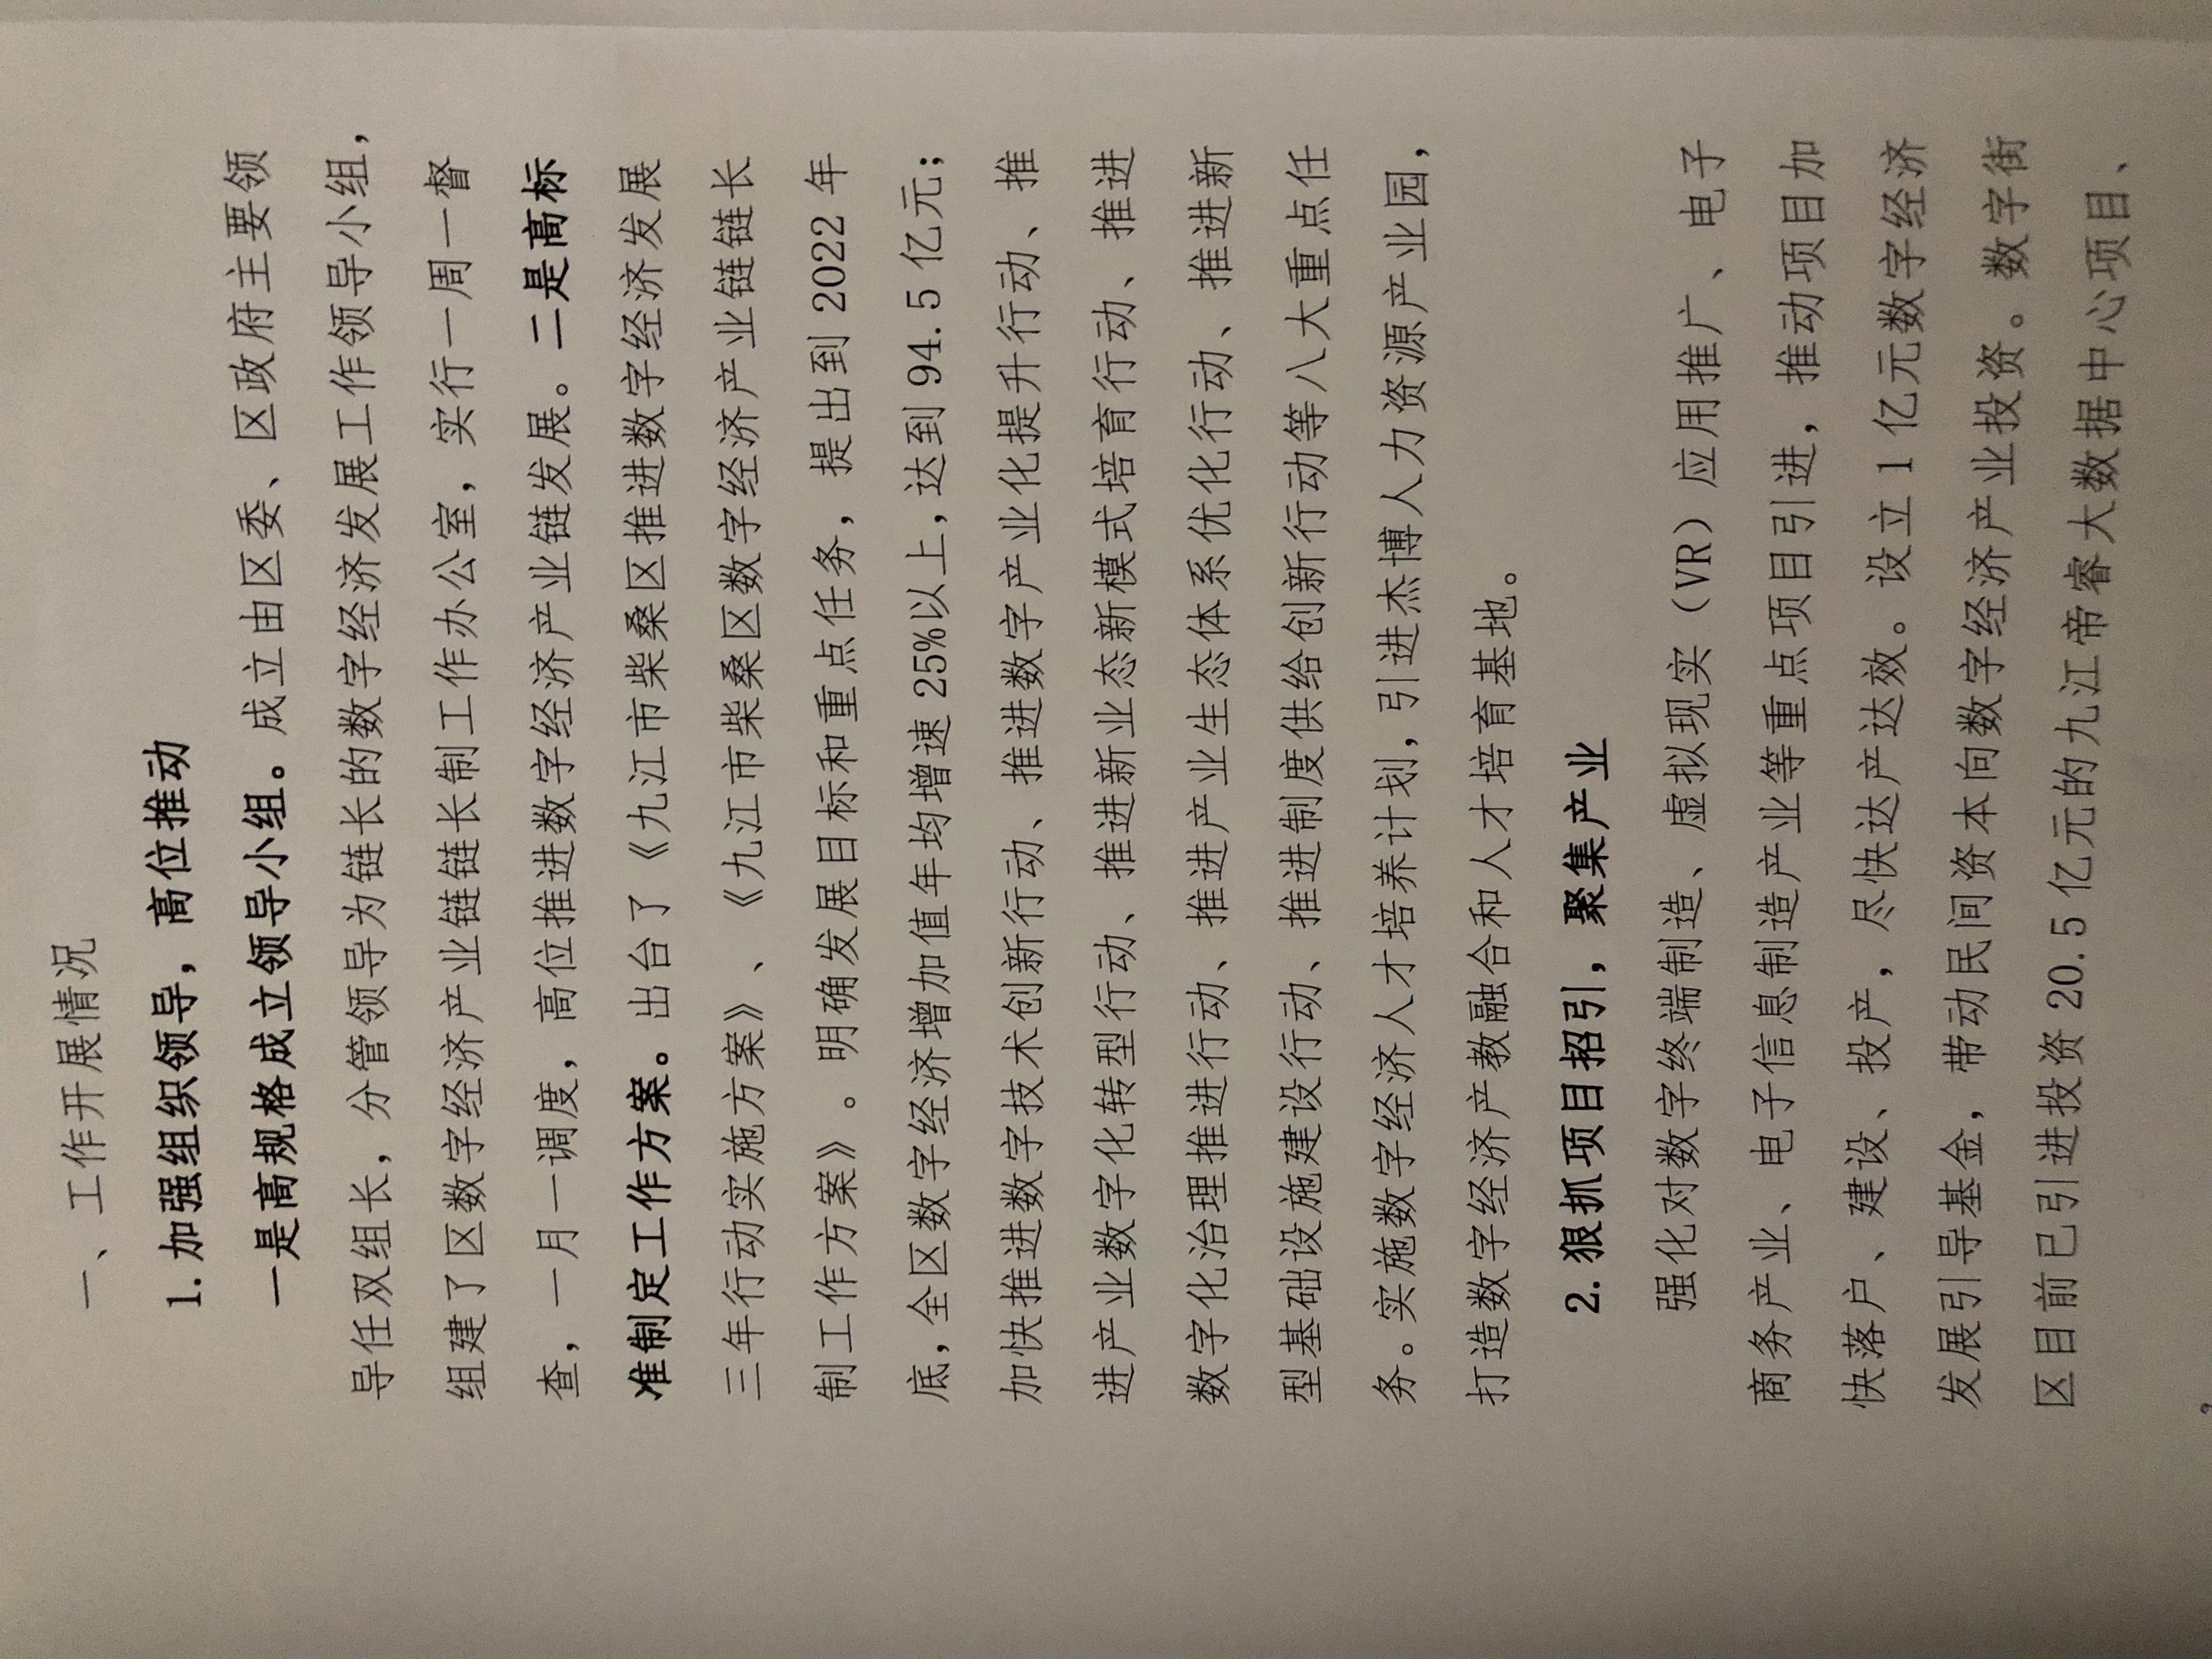 一、工作开展情况
1.加强组织领导，高位推动
一是高规格成立领导小组。成立由区委、区政府主要领
导任双组长，分管领导为链长的数字经济发展工作领导小组，
组建了区数字经济产业链链长制工作办公室，实行一周一督
查，一月一调度，高位推进数字经济产业链发展。二是高标
准制定工作方案。出台了《九江市柴桑区推进数字经济发展
三年行动实施方案》、《九江市柴桑区数字经济产业链链长
制工作方案》。明确发展目标和重点任务，提出到 2022 年
底，全区数字经济增加值年均增速 25%以上，达到 94.5 亿元；
加快推进数字技术创新行动、推进数字产业化提升行动、推
进产业数字化转型行动、推进新业态新模式培育行动、推进
数字化治理推进行动、推进产业生态体系优化行动、推进新
型基础设施建设行动、推进制度供给创新行动等八大重点任
务。实施数字经济人才培养计划，引进杰博人力资源产业园，
打造数字经济产教融合和人才培育基地。
2.狠抓项目招引，聚集产业
强化对数字终端制造、虚拟现实（VR）应用推广、电子
商务产业、电子信息制造产业等重点项目引进，推动项目加
快落户、建设、投产，尽快达产达效。设立 1 亿元数字经济
发展引导基金，带动民间资本向数字经济产业投资。数字街
区目前已引进投资 20.5 亿元的九江帝睿大数据中心项目、